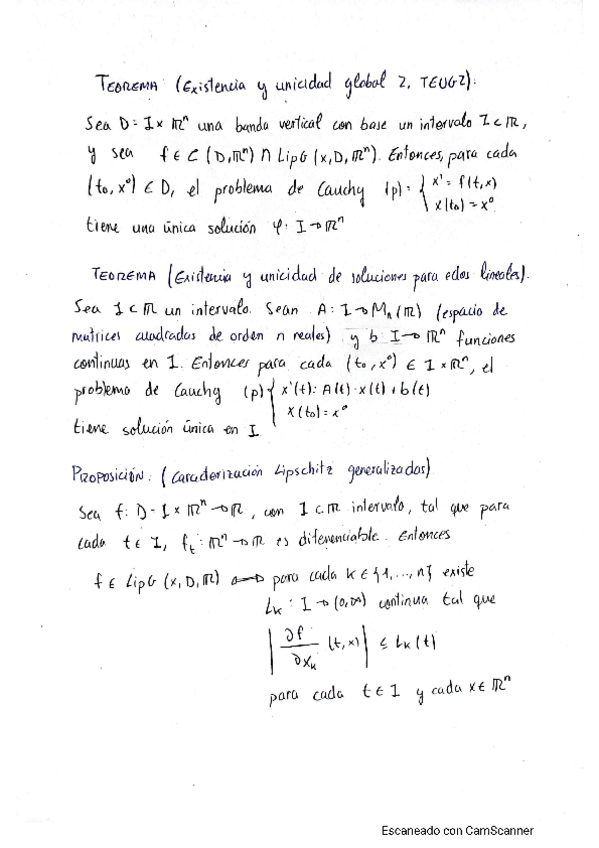 TEOREMA: (Existencia y unicidad global 2, TEUG2):
Sea D = I × ℝⁿ una banda vertical con base un intervalo I ⊂ ℝ,
y sea f ∈ C (D,ℝⁿ) ∩ LipG (x,D,ℝⁿ). Entonces, para cada
(t₀, x⁰) ∈ D, el problema de Cauchy (p) = { x' = f(t,x)
x(t₀) = x⁰
tiene una única solución φ: I → ℝⁿ
TEOREMA (Existencia y unicidad de soluciones para edos lineales).
Sea I ⊂ ℝ un intervalo. Sean A: I → Mₙ(ℝ) (espacio de
matrices cuadradas de orden n reales) y b: I → ℝⁿ funciones
continuas en I. Entonces para cada (t₀, x⁰) ∈ I × ℝⁿ, el
problema de Cauchy (p) { x'(t) = A(t) · x(t) + b(t)
x(t₀) = x⁰
tiene solución única en I
PROPOSICIÓN: (Caracterización Lipschitz generalizados)
Sea f: D = I × ℝⁿ → ℝ, con I ⊂ ℝ intervalo, tal que para
cada t ∈ I, fₜ: ℝⁿ → ℝ es diferenciable. Entonces
f ∈ LipG (x,D,ℝ) ⟺ para cada k ∈ {1, ..., n} existe
Lₖ : I → (0,∞) continua tal que
| ∂f/∂xₖ (t,x) | ≤ Lₖ(t)
para cada t ∈ I y cada x ∈ ℝⁿ
Escaneado con CamScanner